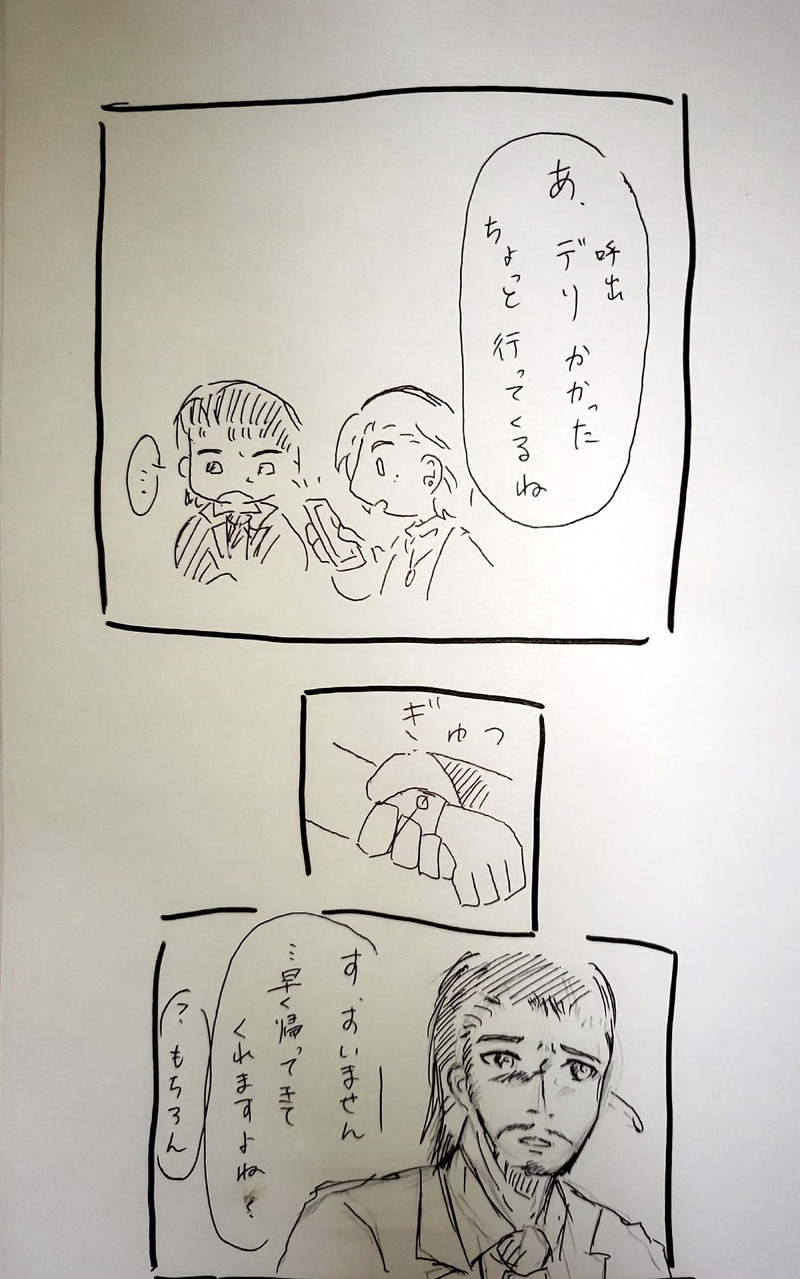 あ、
呼出
デリかかった
ちょっと行ってくるね
…
ぎゅっ
す、すいません
…早く帰ってきて
くれますよね?
?もちろん